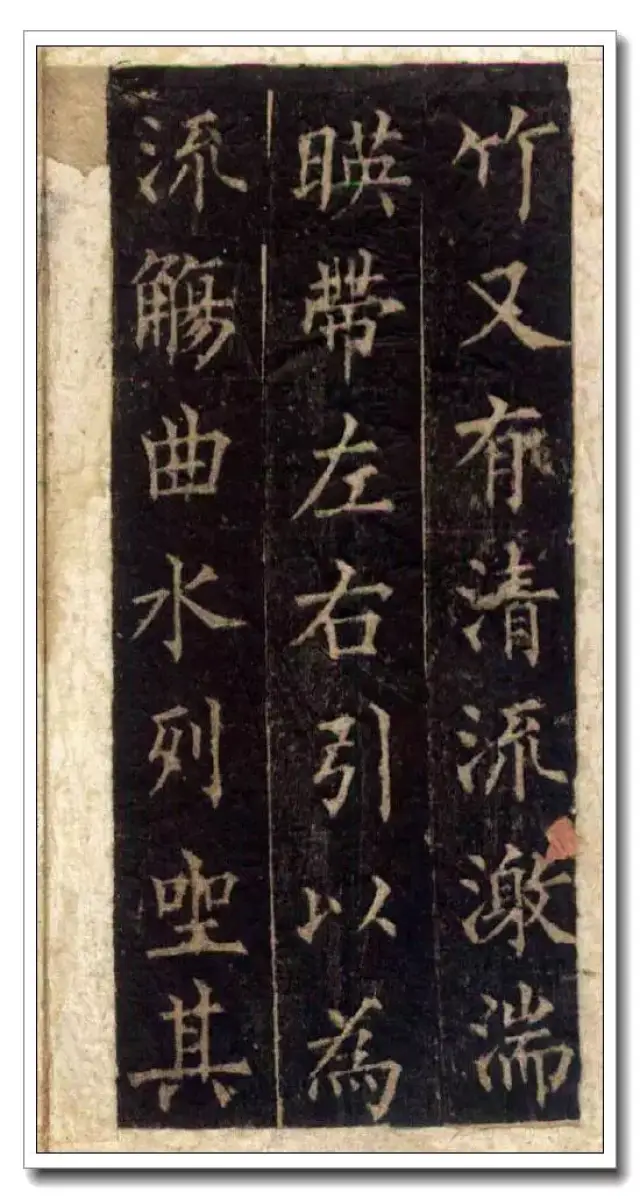 竹又有清流激湍
暎帶左右引以為
流觴曲水列坐其